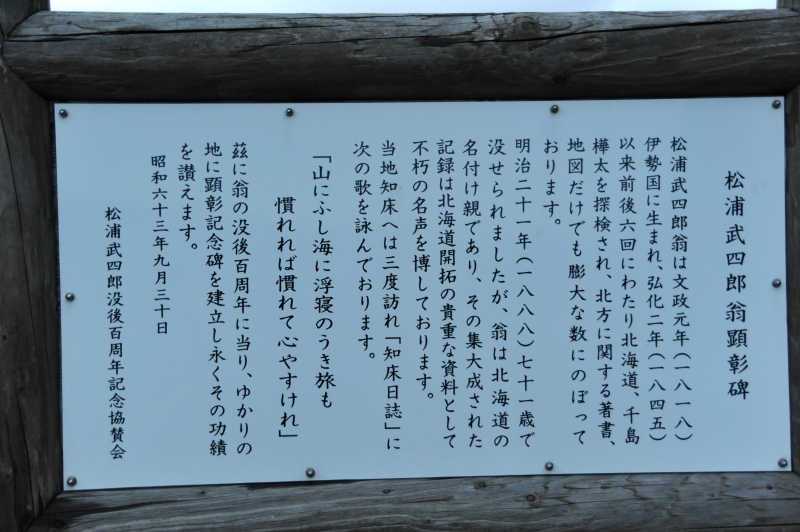 松浦武四郎翁顕彰碑
松浦武四郎翁は文政元年(一八一八)
伊勢国に生まれ、弘化二年(一八四五)
以来前後六回にわたり北海道、千島
樺太を探検され、北方に関する著書、
地図だけでも膨大な数にのぼって
おります。
明治二十一年(一八八八)七十一歳で
没せられましたが、翁は北海道の
名付け親であり、その集大成された
記録は北海道開拓の貴重な資料として
不朽の名声を博しております。
当地知床へは三度訪れ「知床日誌」に
次の歌を詠んでおります。
「山にふし海に浮寝のうき旅も
慣れれば慣れて心やすけれ」
茲に翁の没後百周年に当り、ゆかりの
地に顕彰記念碑を建立し永くその功績
を讃えます。
昭和六十三年九月三十日
松浦武四郎没後百周年記念協賛会